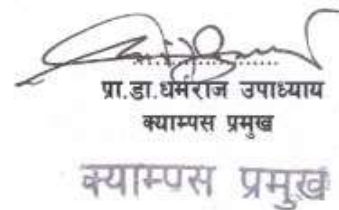 प्रा.डा.धर्मराज उपाध्याय
क्याम्पस प्रमुख
क्याम्पस प्रमुख